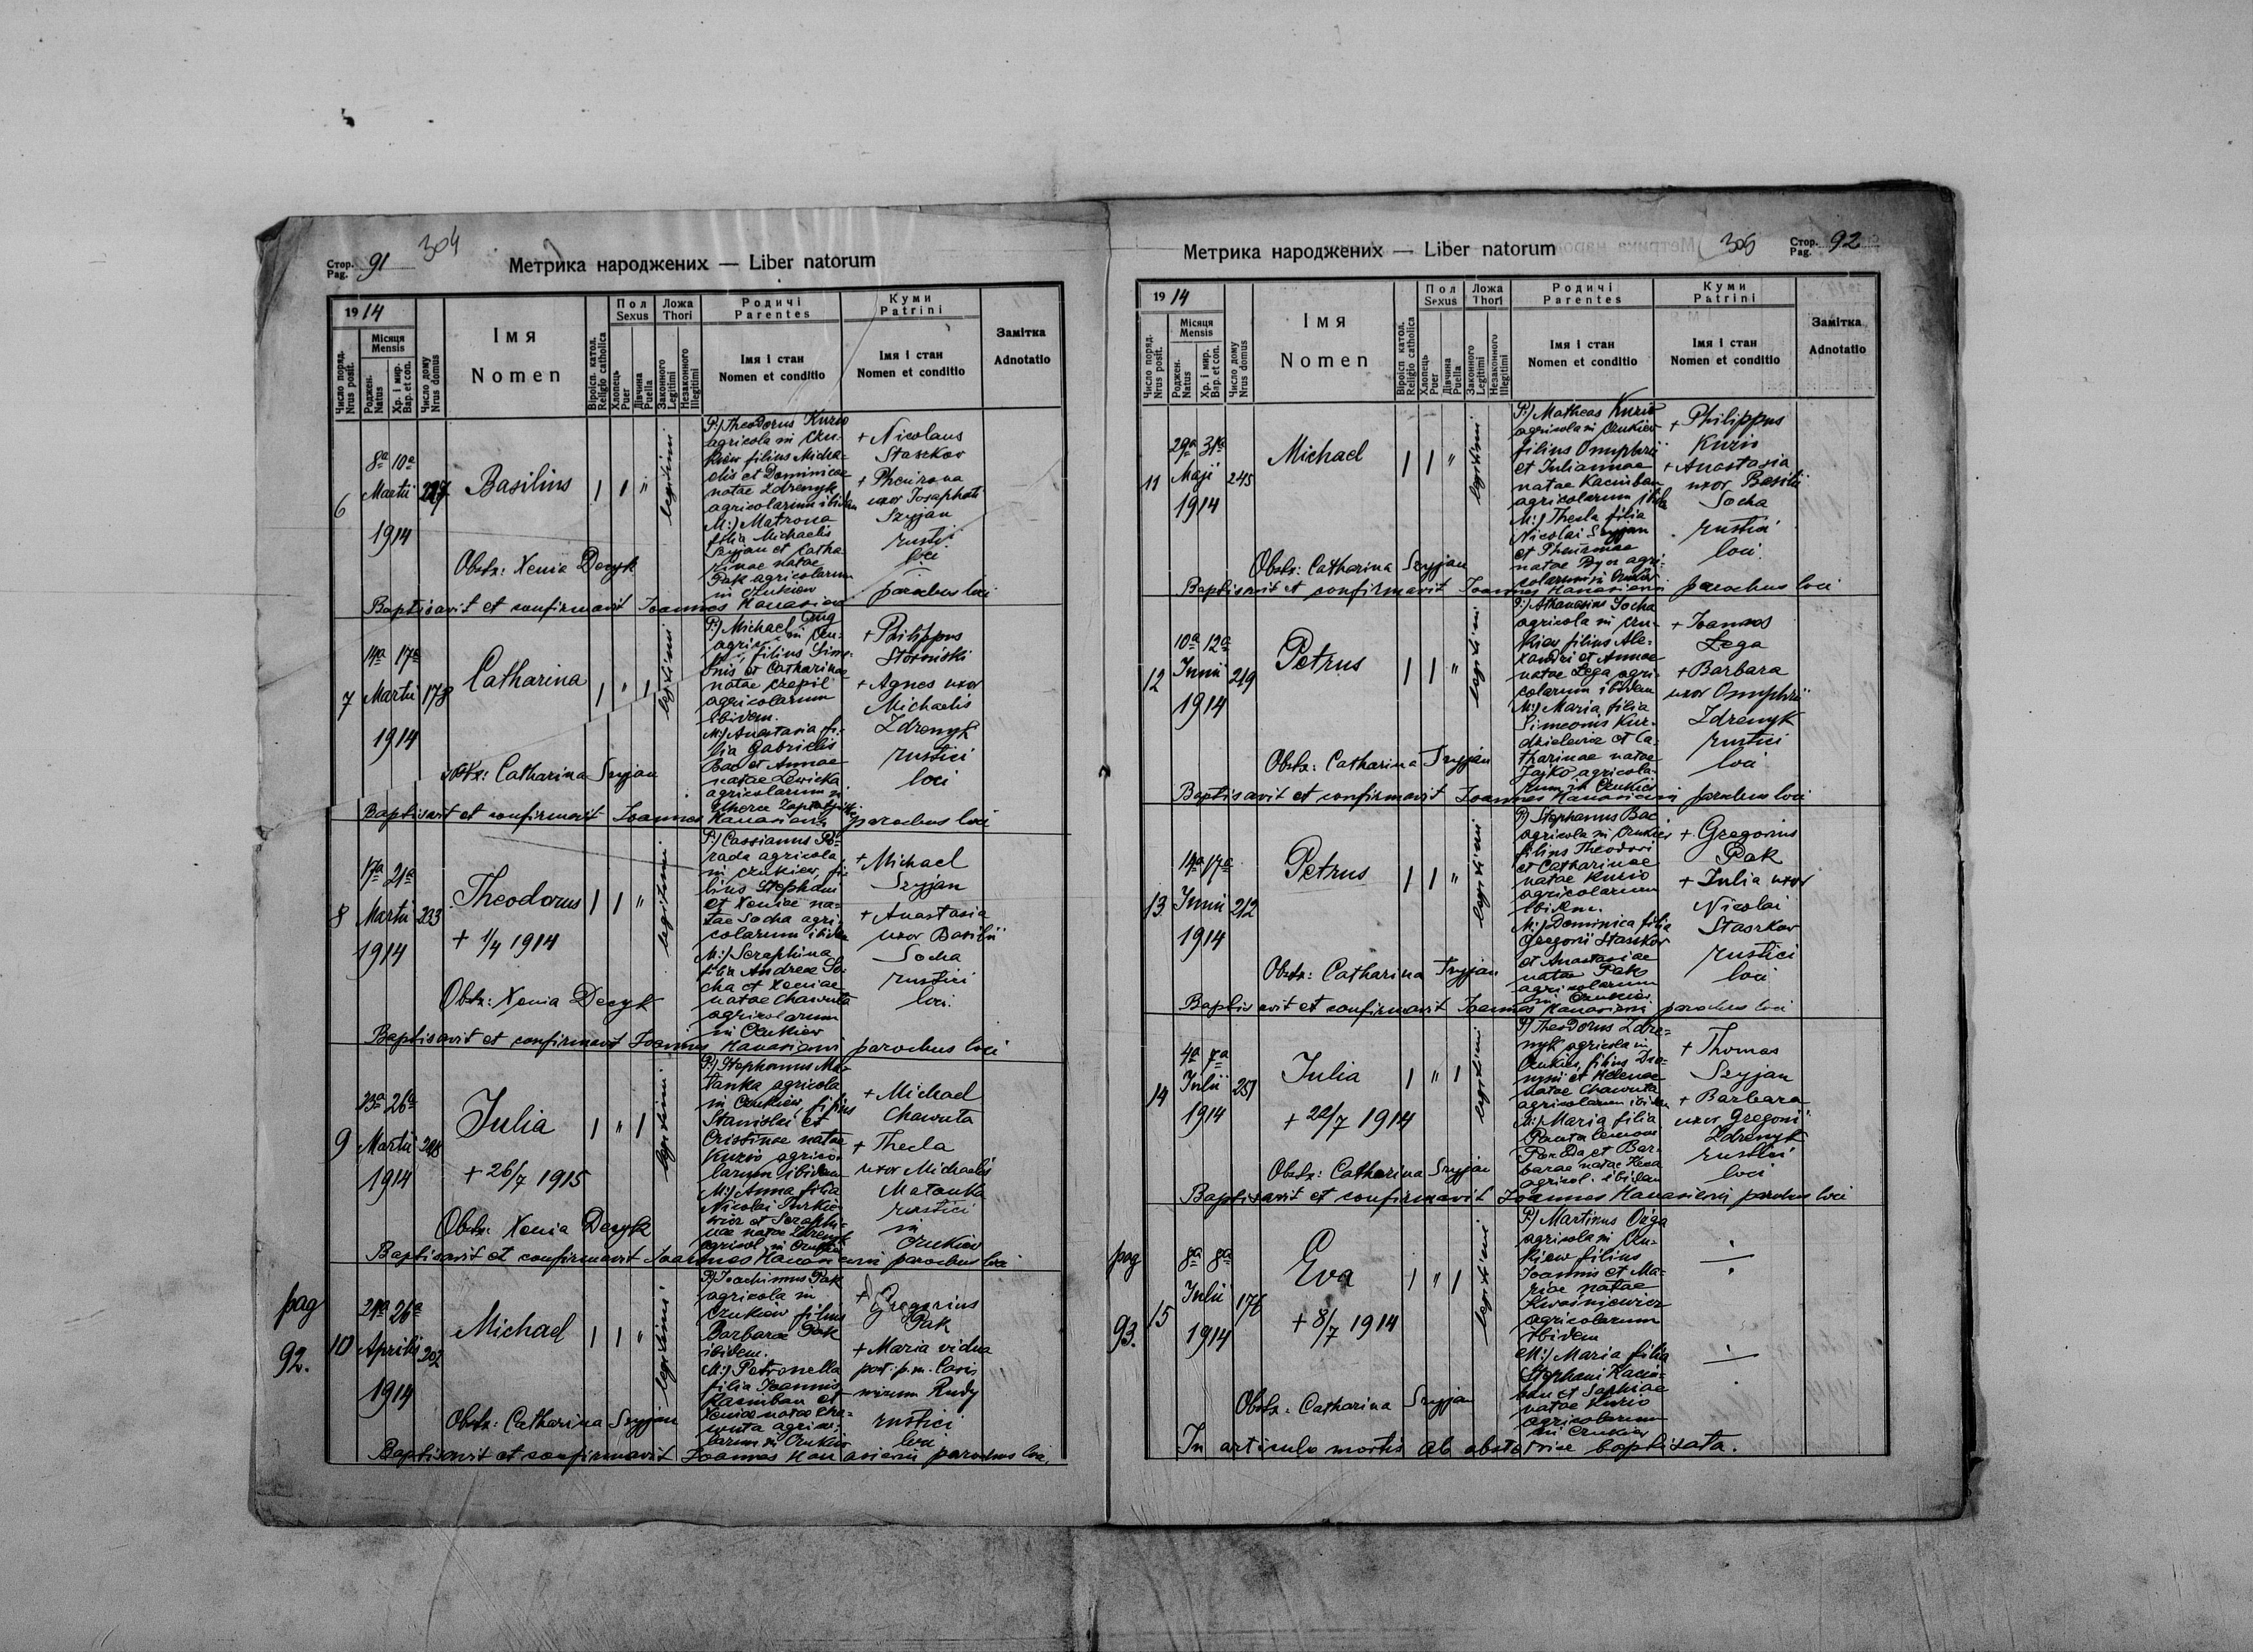 Стор. Pag. 91
304
Метрика народжених — Liber natorum
1914
Число поряд. Nrus posit.
Місяця Mensis
Роджен. Natus
Хр. і мир. Bap. et con.
Число дому Nrus domus
Імя
Nomen
Віроісп. катол. Religio catholica
Пол Sexus
Хлопець Puer
Дівчина Puella
Ложа Thori
Законного Legitimi
Незаконного Illegitimi
Родичі Parentes
Імя і стан
Nomen et conditio
Куми Patrini
Імя і стан
Nomen et conditio
Замітка
Adnotatio
6
8a 10a
Martii
1914
Basilius
legitimi
P:) Theodorus Kuzio
agricola in Czu-
kiew filius Micha-
elis et Dominicae
natae Zdrenyk
agricolarum ibidem
M:) Matrona
filia Michaelis
Szyjan et Catha
rinae natae
Pak agricolarum
in Czukiew
+ Nicolaus
Staszkow
+ Pheurona
uxor Josaphati
Szyjan
rustici
loci
Obstz: Xenia Decyk
Baptisavit et confirmavit Joannes Hanasiewi parochus loci
7
14a 17a
Martii 178
1914
Catharina
legitimi
P:) Michael
agricola in Czu-
filius Sime-
onis et Catharinae
natae Czepil
agricolarum
ibidem.
M:) Anastasia fi-
lia Gabrielis
Bac et Annae
natae Lewicka
agricolarum in
+ Philippus
+ Agnes uxor
Michaelis
Zdrenyk
rustici
loci
Obstz: Catharina Szyjan
Baptisavit et confirmavit Joannes Hanasiewi parochus loci
8
17a 21a
Martii 233
1914
Theodorus
+ 1/4 1914
legitimi
P:) Cassianus Po-
rada agricola
in Czukiew, fi-
lius Stephani
et Xeniae na-
tae Socha agri-
colarum ibidem
M:) Seraphina
filia Andreae So-
cha et Xeniae
natae Chawuta
agricolarum
in Czukiew
+ Michael
Szyjan
+ Anastasia
uxor Basilii
Socha
rustici
loci.
Obstz: Xenia Decyk
Baptisavit et confirmavit Joannes Hanasiewi parochus loci
9
23a 26a
Martii 248
1914
Julia
+ 26/7 1915
legitimi
P:) Stephanus Ma-
tanka agricola
in Czukiew, filius
Stanislai et
Cristinae natae
Kuzio agrico-
larum ibidem
M:) Anna filia
Nicolai Turkie-
wicz et Seraphi-
nae natae Zdrenyk
agricol. in Czukiew
+ Michael
Chawuta
+ Thecla
uxor Michaelis
Matanka
rustici
in
Czukiew
Obstz: Xenia Decyk
Baptisavit et confirmavit Joannes Hanasiewi parochus loci
pag
92.
10
24a 26a
Aprilis 202
1914
Michael
legitimi
P:) Joachimus Pak
agricola in
Czukiew filius
Barbarae Pak
ibidem.
M:) Petronella
filia Joannis
Kacimban et
Xeniae natae Cha-
wuta agrico-
larum in Czukiew
+ Gregorius
Pak
+ Maria vidua
Rudy
rustici
loci
Obstz: Catharina Szyjan
Baptisavit et confirmavit Joannes Hanasiewi parochus loci.
Метрика народжених — Liber natorum
Стор. Pag. 92
1914
Число поряд. Nrus posit.
Місяця Mensis
Роджен. Natus
Хр. і мир. Bap. et con.
Число дому Nrus domus
Імя
Nomen
Віроісп. катол. Religio catholica
Пол Sexus
Хлопець Puer
Дівчина Puella
Ложа Thori
Законного Legitimi
Незаконного Illegitimi
Родичі Parentes
Імя і стан
Nomen et conditio
Куми Patrini
Імя і стан
Nomen et conditio
Замітка
Adnotatio
11
29a 31a
Maji 245
1914
Michael
legitimi
P:) Matheas Kuzio
agricola in Czukiew
filius Onuphrii
et Juliannae
natae Kacimban
agricolarum ibidem
M:) Thecla filia
Nicolai Szyjan
et
natae agri-
colarum in Czukiew
+ Philippus
Kuzio
+ Anastasia
uxor Basilii
Socha
rustici
loci.
Obstz: Catharina Szyjan
Baptisavit et confirmavit Joannes Hanasiewi parochus loci
12
10a 12a
Junii 219
1914
Petrus
legitimi
P:) Athanasius Socha
agricola in Czu-
kiew filius Ale-
xandri et Annae
natae Lega agri-
colarum ibidem
M:) Maria filia
Simeonis Kur-
dzielewicz et Ca-
tharinae natae
Jajko agricola-
rum in Czukiew
+ Joannes
Lega
+ Barbara
uxor Onuphrii
Zdrenyk
rustici
loci
Obstz: Catharina Szyjan
Baptisavit et confirmavit Joannes Hanasiewi parochus loci
13
14a 17a
Junii 212
1914
Petrus
legitimi
P:) Stephanus Bac
agricola in Czukiew
filius Theodori
et Catharinae
natae Kuzio
agricolarum
ibidem.
M:) Dominica filia
Gregorii Staszkow
et Anastasiae
natae Pak
agricolarum
in Czukiew
+ Gregorius
Pak
+ Julia uxor
Nicolai
Staszkow
rustici
loci
Obstz: Catharina Szyjan
Baptisavit et confirmavit Joannes Hanasiewi parochus loci
14
4a 7a
Julii 251
1914
Julia
+ 22/7 1914
legitimi
P:) Theodorus Zdre-
nyk agricola in
Czukiew, filius Dio-
nysii et Helenae
natae Chawuta
agricolarum ibidem
M:) Maria filia
Pantalemonis
et Bar-
barae natae
agricol. ibidem
+ Thomas
Szyjan
+ Barbara
uxor Gregorii
Zdrenyk
rustici
loci
Obstz: Catharina Szyjan
Baptisavit et confirmavit Joannes Hanasiewi parochus loci
pag
93.
15
8a 8a
Julii 176
1914
Eva
+ 8/7 1914
legitimi
P:) Martinus Ożga
agricola in Czu-
kiew filius
Joannis et Ma-
riae natae
Kwaśniewicz
agricolarum
ibidem
M:) Maria filia
Stephani Kacim-
ban et Sophiae
natae Kuzio
agricolarum
in Czukiew
Obstz: Catharina Szyjan
In articulo mortis ab obstetrice baptisata.